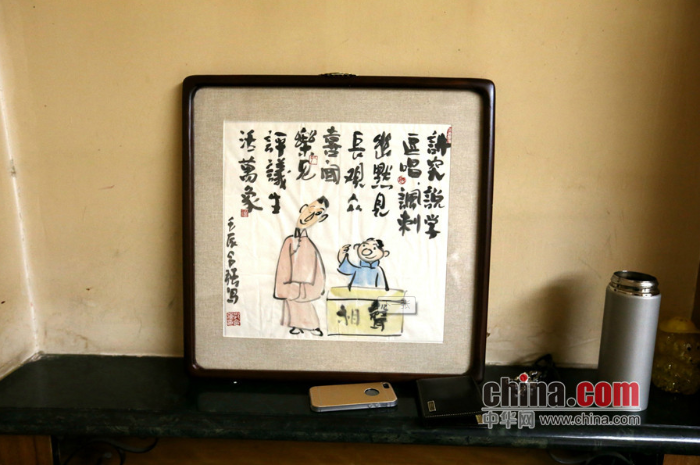 訴究說学
逗唱諷刺
幽默見
長觀众
喜闻
樂見
評議生
活萬象
壬辰
相聲
china.com
中华网 www.china.com